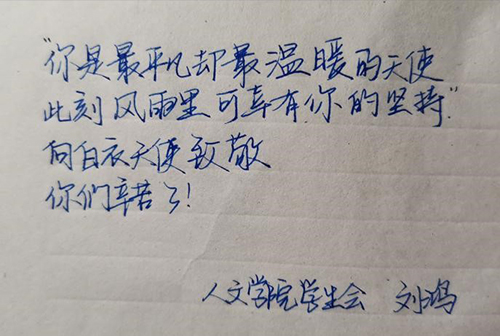 “你是最平凡却最温暖的天使
此刻风雨里可幸有你的坚持”
向白衣天使致敬
你们辛苦了!
人文学院学生会 刘鸿